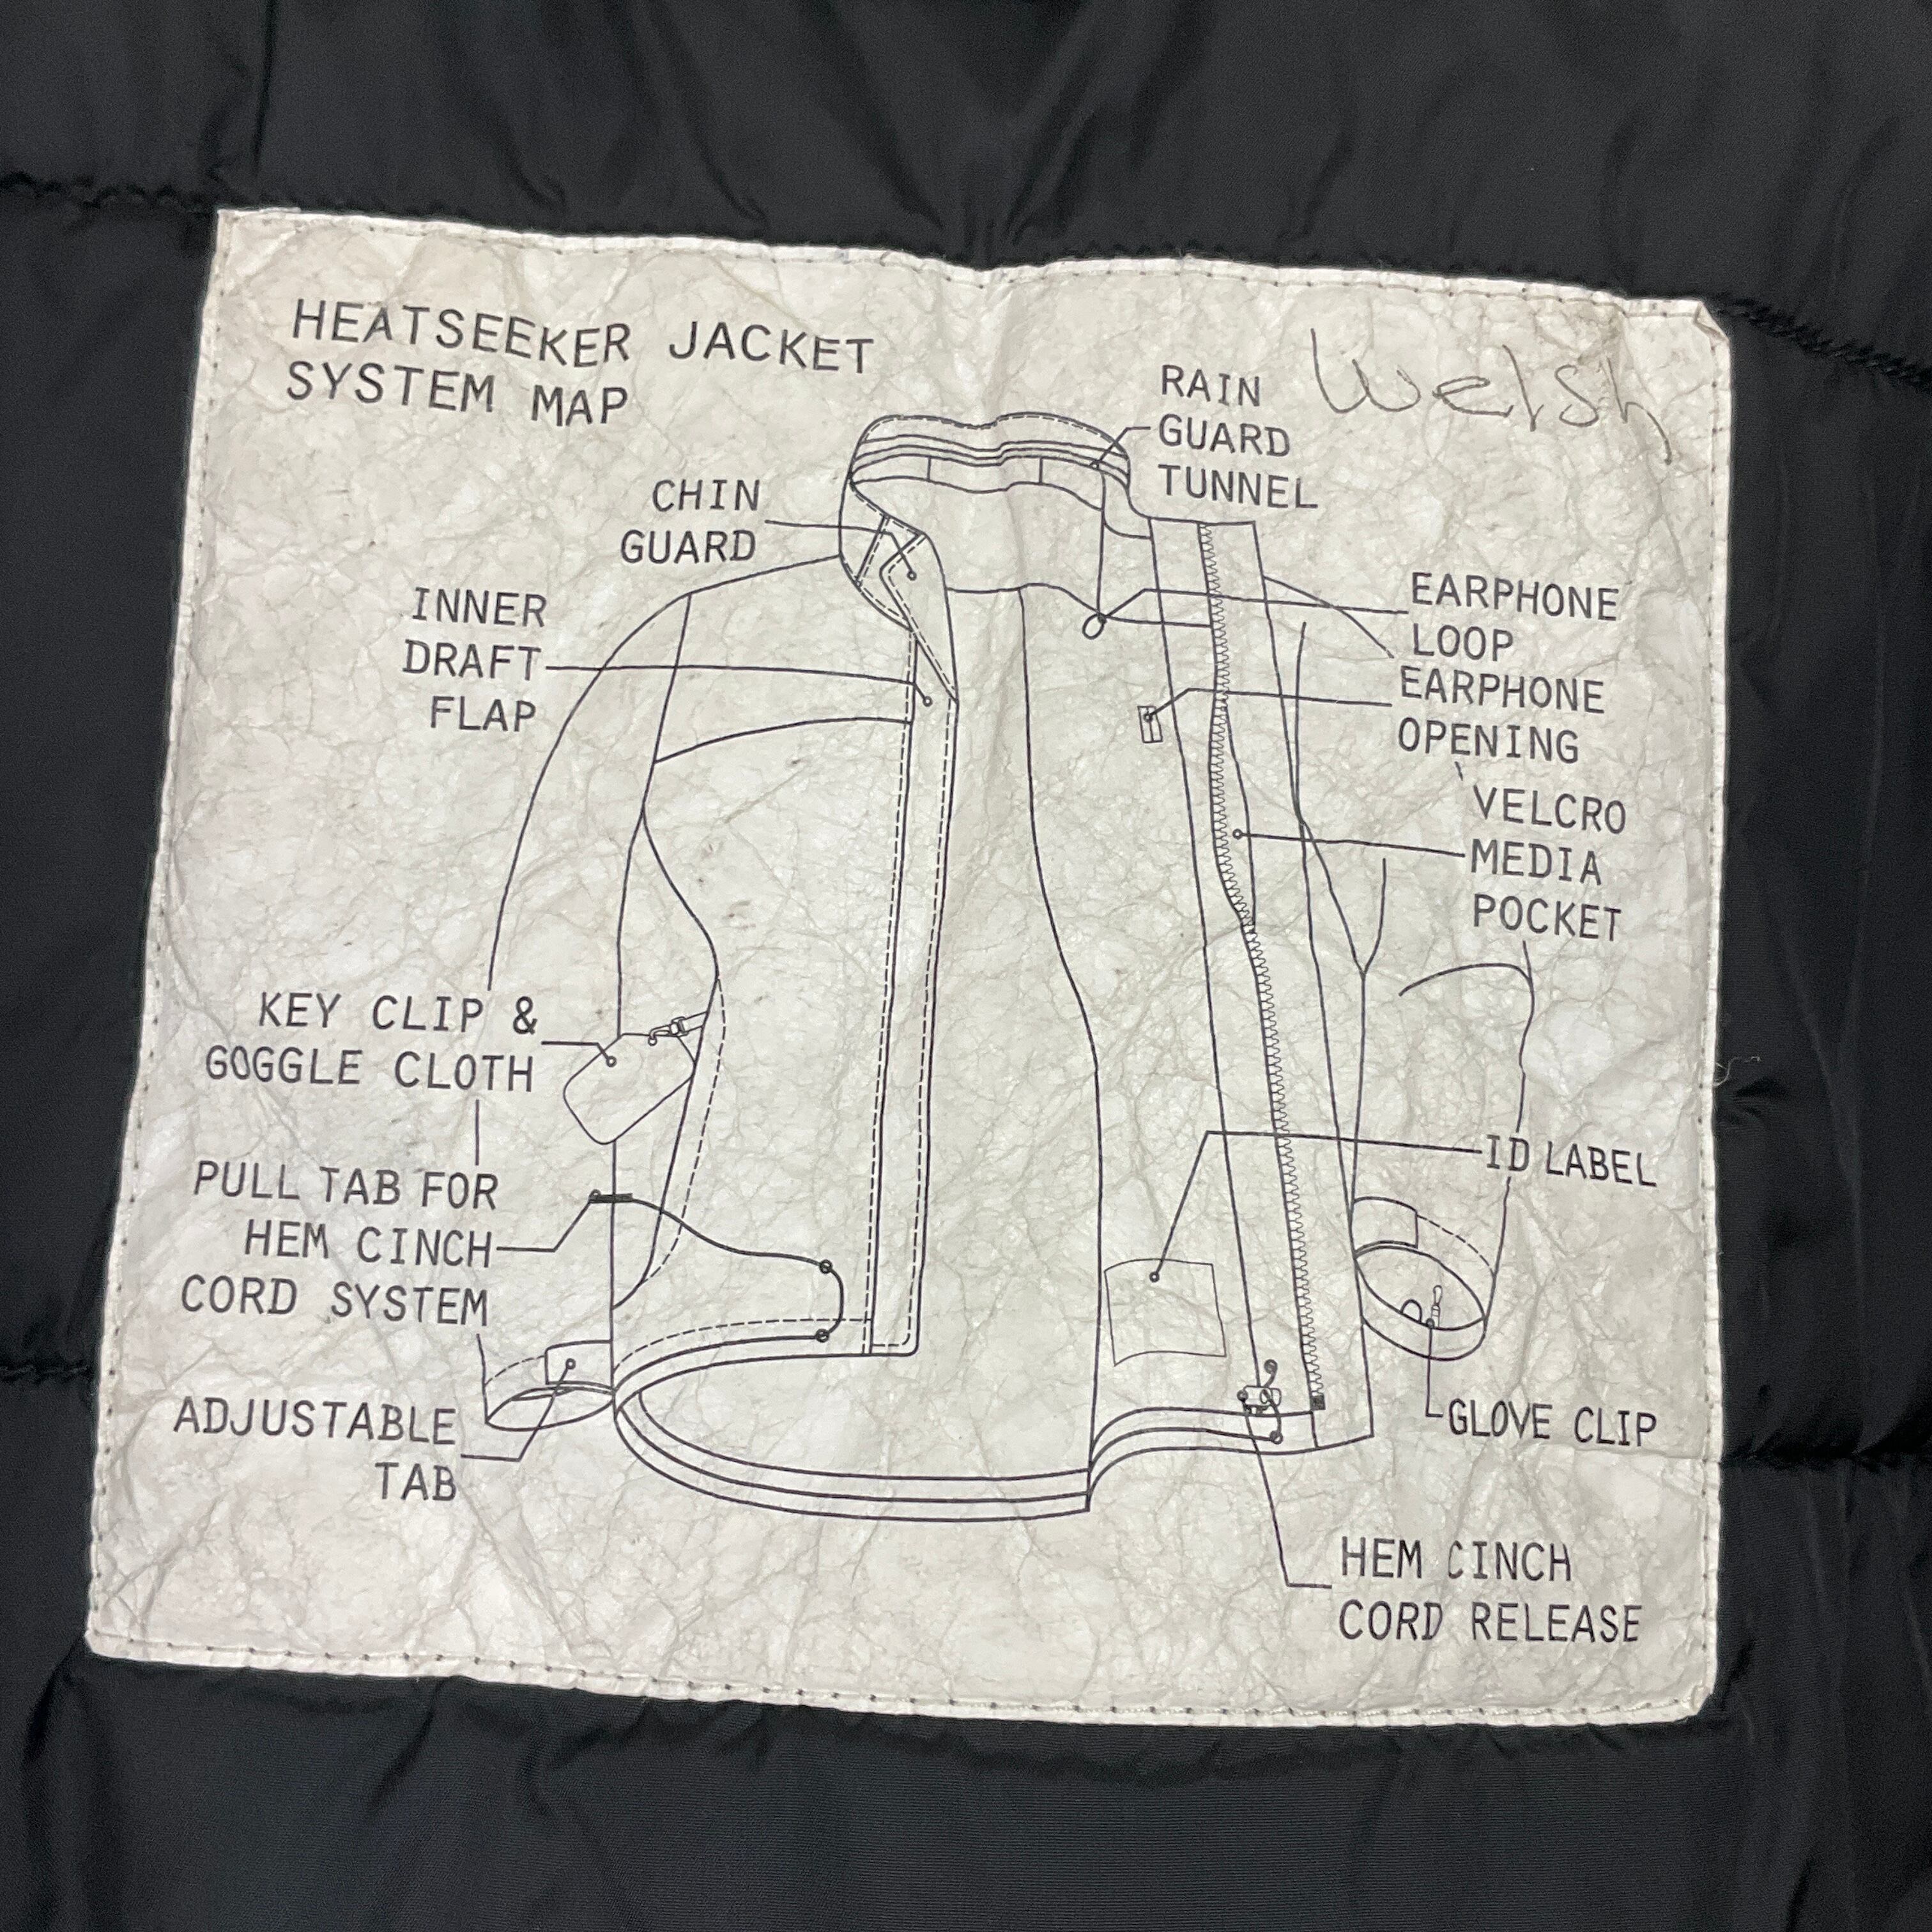 HEATSEEKER JACKET
SYSTEM MAP
Welsh
RAIN
GUARD
TUNNEL
CHIN
GUARD
INNER
DRAFT
FLAP
EARPHONE
LOOP
EARPHONE
OPENING
VELCRO
MEDIA
POCKET
KEY CLIP &
GOGGLE CLOTH
PULL TAB FOR
HEM CINCH
CORD SYSTEM
ID LABEL
ADJUSTABLE
TAB
GLOVE CLIP
HEM CINCH
CORD RELEASE